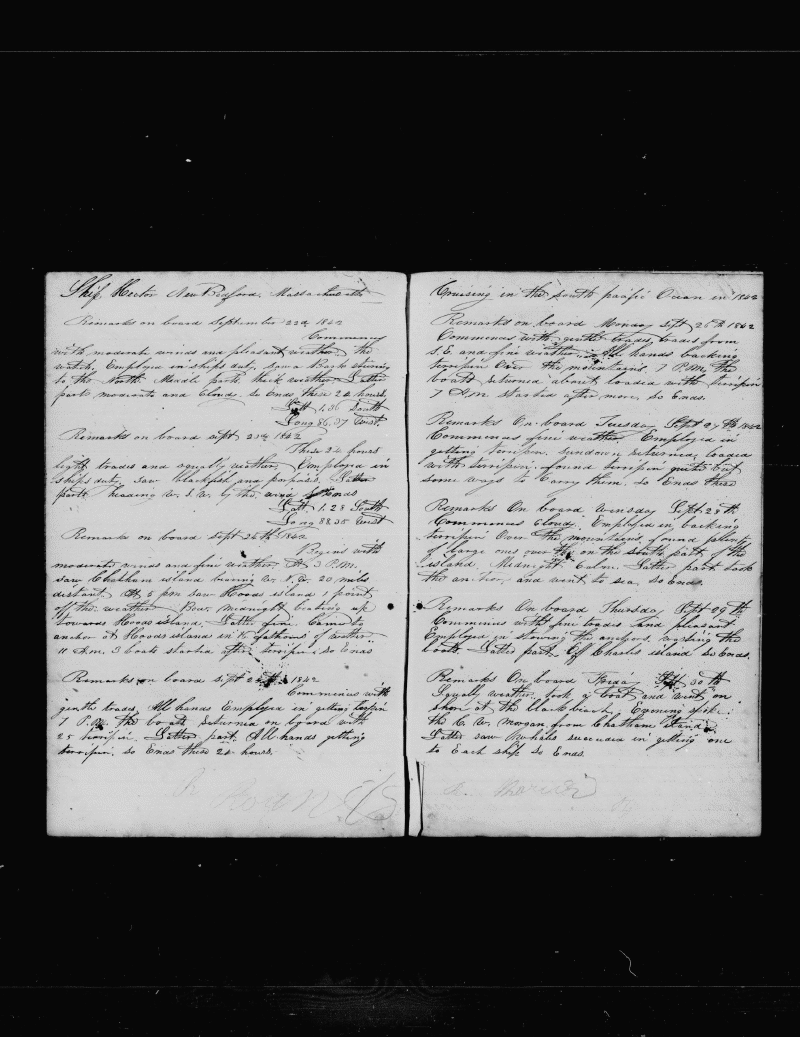 Ship Hector New Bedford. Massachusetts
Remarks on board September 22d 1842
Commences
with moderate winds and pleasant weather the
watch, Employed in ships duty, Saw a Bark steering
to the North Middle part thick weather Latter
part moderate and Cloudy. So Ends these 24 hours.
Latt 1.36 South
Long 86.37 West
Remarks on board Sept 23rd 1842
These 24 hours
light trades and squally weather, Employed in
ships duty, Saw blackfish and porpoises. Latter
part heading W.S.W. by the wind So Ends
Latt. 1.28 South
Long 88.35 West
Remarks on board Sept 24th 1842
Begins with
moderate winds and fine weather. At 3 P.M.
saw Chatham island bearing W. N. W. 20 miles
distant. At 5 pm saw Hoods island 1 point
off the weather Bow, Midnight beating up
towards Hoods island. Latter fine. Came to
anchor at Hoods island in 15 fathoms of water.
11 A.m. 3 boats started after terripin, so Ends
Remarks on board Sept 25th 1842
Commences with
gentle trades, All hands Employed in getting terrpin
7 P.M. the boats returned on board with
25 terripin. Latter part All hands getting
terripin. so Ends these 24 hours.
Cruising in the South pacific Ocean in 1842
Remarks on board Monday Sept 26th 1842
Commences with gentle trades, trades from
S.E. and fine weather. All hands backing
terripin Over the mountains. 7 P.M. the
boats returned about loaded with terripin
7 A.m. started after more, so Ends.
Remarks On board Tuesday Sept 27th 1842
Commences fine weather, Employed in
getting terripin. sundown returned loaded
with terripin. found terripin quite but
some ways to Carry them. So Ends these
Remarks On board Wensday Sept 28th
Commences Cloudy. Employed in backing
terripin Over the mountains, found plenty
of large ones over the on the South part of the
island. Midnight Calm. Latter part took
the anchor and went to sea, so Ends.
Remarks On board Thursday Sept 29th
Commences with fine trades and pleasant
Employed in stowing the anchors, washing the
boats Latter part off Charles island so Ends.
Remarks On board Friday Sept 30th
Squally weather, took a boat and went on
shore at the black beach, Evening spoke
the C. W. Morgan from Chatham Island
Latter saw Whales succeeded in getting one
to Each ship So Ends.